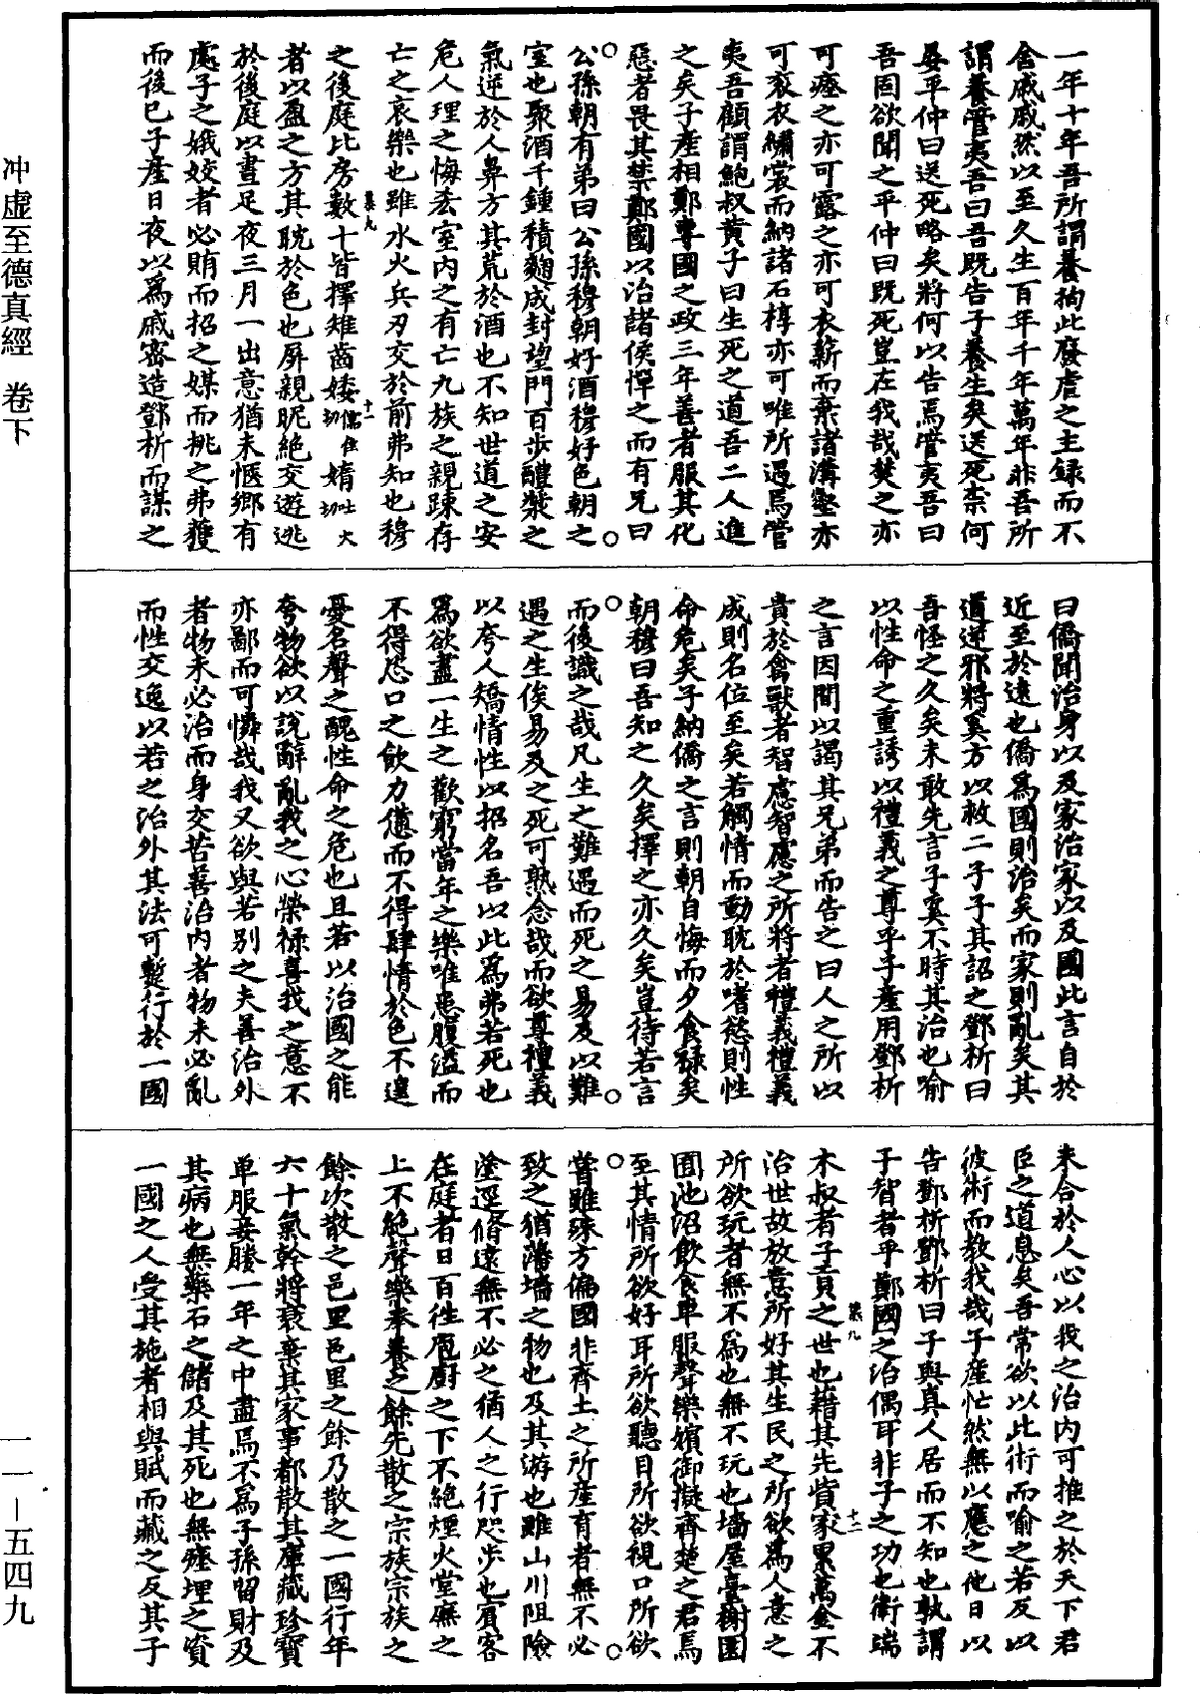 一年十年吾所謂養拘此廢虐之主録而不
舍戚戚然以至久生百年千年萬年非吾所
謂養管夷吾曰吾既告子養生矣送死柰何
晏平仲曰送死略矣將何以告焉管夷吾曰
吾固欲聞之平仲曰既死豈在我哉焚之亦
可瘞之亦可露之亦可衣薪而棄諸溝壑亦
可衮衣繡裳而納諸石椁亦可唯所遇焉管
夷吾顧謂鮑叔黄子曰生死之道吾二人進
之矣子產相鄭專國之政三年善者服其化
惡者畏其禁鄭國以治諸侯憚之而有兄曰
公孫朝有弟曰公孫穆朝好酒穆好色朝之
室也聚酒千鍾積麴成封望門百步醩漿之
氣逆於人鼻方其荒於酒也不知世道之安
危人理之悔吝室内之有亡九族之親踈存
亡之哀樂也雖水火兵刃交於前弗知也穆
之後庭比房數十皆擇雉齒婑儒隹切媠吐火切
者以盈之方其耽於色也屏親昵絶交遊逃
於後庭以晝足夜三月一出意猶未愜鄉有
處子之娥姣者必賄而招之媒而挑之弗獲
而後已子產日夜以爲戚密造鄧析而謀之
曰僑聞治身以及家治家以及國此言自於
近至於遠也僑爲國則治矣而家則亂矣其
道逆邪將奚方以救二子子其詔之鄧析曰
吾怪之久矣未敢先言子奚不時其治也喻
以性命之重誘以禮義之尊乎子產用鄧析
之言因間以謁其兄弟而告之曰人之所以
貴於禽獸者智慮智慮之所將者禮義禮義
成則名位至矣若觸情而動耽於嗜慾則性
命危矣子納僑之言則朝自悔而夕食祿矣
朝穆曰吾知之久矣擇之亦久矣豈待若言
而後識之哉凡生之難遇而死之易及以難
遇之生俟易及之死可熟念哉而欲尊禮義
以夸人矯情性以招名吾以此爲弗若死也
爲欲盡一生之歡窮當年之樂唯患腹溢而
不得恣口之飲力憊而不得肆情於色不遑
憂名聲之醜性命之危也且若以治國之能
夸物欲以説辭亂我之心榮祿喜我之意不
亦鄙而可憐哉我又欲與若别之夫善治外
者物未必治而身交苦善治内者物未必亂
而性交逸以若之治外其法可蹔行於一國
未合於人心以我之治内可推之於天下君
臣之道息矣吾常欲以此術而喻之若反以
彼術而教我哉子產忙然無以應之他日以
告鄧析鄧析曰子與真人居而不知也孰謂
子智者乎鄭國之治偶耳非子之功也衛端
木叔者子貢之世也藉其先貲家累萬金不
治世故放意所好其生民之所欲爲人意之
所欲玩者無不爲也無不玩也墻屋臺榭園
囿池沼飲食車服聲樂嬪御擬齊楚之君焉
至其情所欲好耳所欲聽目所欲視口所欲
嘗雖殊方偏國非齊土之所產育者無不必
致之猶藩墻之物也及其游也雖山川阻險
塗逕脩遠無不必之猶人之行咫步也賓客
在庭者日百徃庖廚之下不絶煙火堂廡之
上不絶聲樂奉養之餘先散之宗族宗族之
餘次散之邑里邑里之餘乃散之一國行年
六十氣幹將衰棄其家事都散其庫藏珍寶
車服妾媵一年之中盡焉不爲子孫留財及
其病也無藥石之儲及其死也無瘞埋之資
一國之人受其施者相與賦而藏之反其子
冲虚至德真經　卷下
一一—五四九